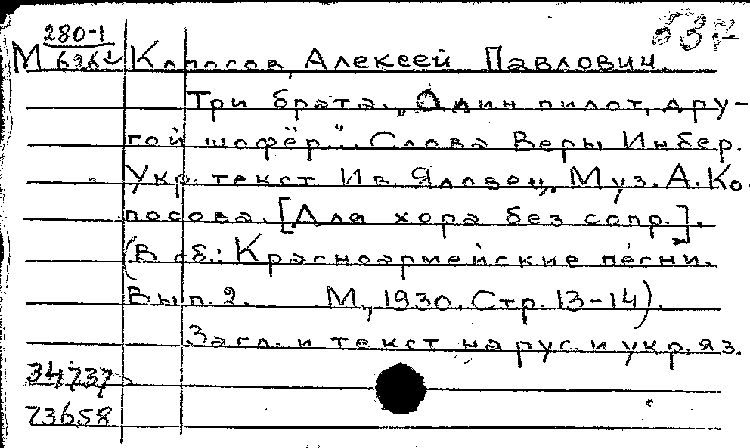 280-1
М 626 Колосов, Алексей Павлович.
Три брата. „Один пилот, дру-
гой шофёр". Слова Веры Инбер.
Укр. текст Ив. Яловец. Муз. А. Ко-
лосова. [Для хора без сопр.].
(В сб.: Красноармейские песни.
Вып. 2. М., 1930. Стр. 13-14).
Загл. и текст на рус. и укр. яз.
34737
73658